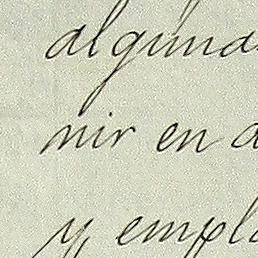 algunas
nir en a
y empl